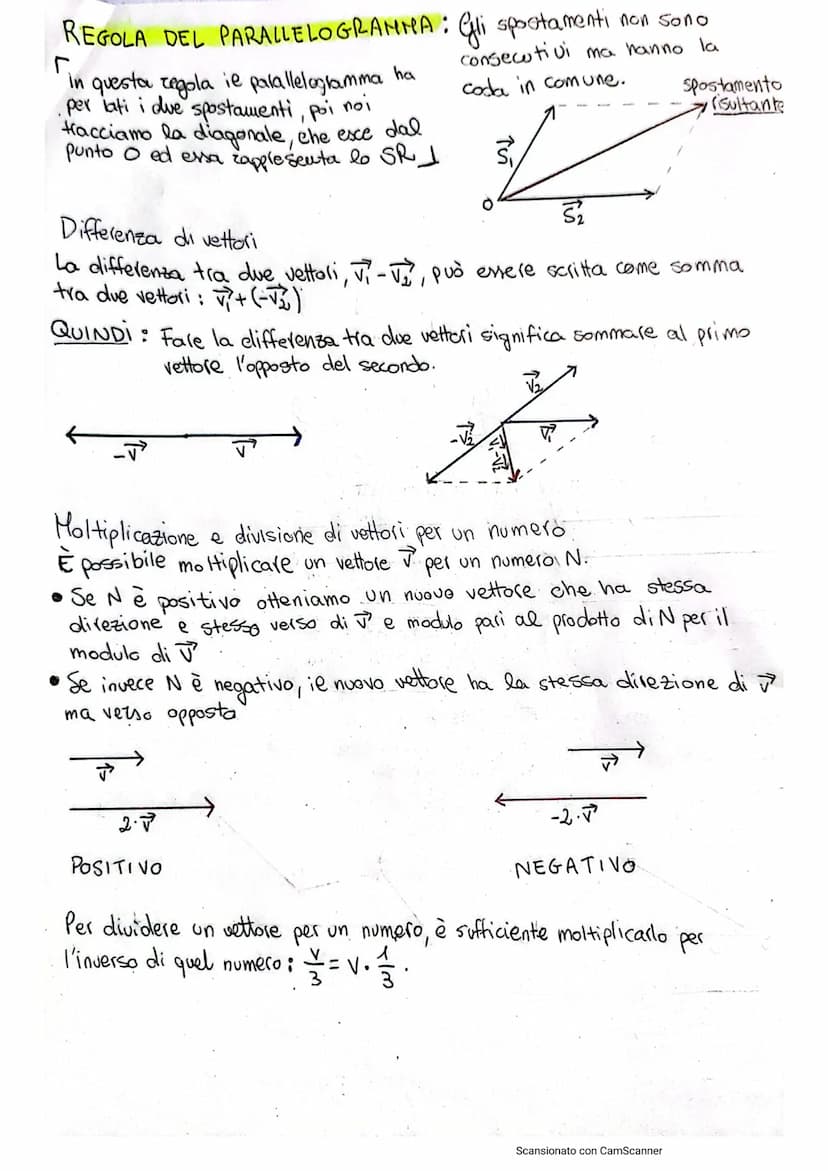 REGOLA DEL PARALLELOGRAMMA: Gli spostamenti non sono
consecutivi ma hanno la
coda in comune.
In questa regola il parallelogramma ha
per lati i due spostamenti, poi noi
tracciamo la diagonale, che esce dal
punto O ed essa rappresenta lo SR
spostamento
risultante
S₁
O
S₂
Differenza di vettori
La differenza tra due vettori, v⃗₁ - v⃗₂, può essere scritta come somma
tra due vettori: v⃗₁+(-v⃗₂)
QUINDI: Fare la differenza tra due vettori significa sommare al primo
vettore l'opposto del secondo.
v⃗₂
-v⃗₂
v⃗₁
-v⃗
v⃗
Moltiplicazione e divisione di vettori per un numero
È possibile moltiplicare un vettore v⃗ per un numero N.
• Se N è positivo otteniamo un nuovo vettore che ha stessa
direzione e stesso verso di v⃗ e modulo pari al prodotto di N per il
modulo di v⃗
• Se invece N è negativo, il nuovo vettore ha la stessa direzione di v⃗
ma verso opposto
v⃗
v⃗
2·v⃗
-2·v⃗
POSITIVO
NEGATIVO
Per dividere un vettore per un numero, è sufficiente moltiplicarlo per
l'inverso di quel numero: v/3 = v · 1/3.
Scansionato con CamScanner